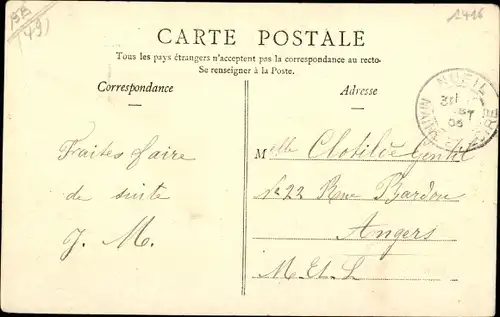 CARTE POSTALE
Tous les pays étrangers n'acceptent pas la correspondance au recto-
Se renseigner à la Poste.
Correspondance
Adresse
Faites faire
de suite
J. M.
Melle Clotilde Gentil
No 22 Rue Bardou
Angers
M. et. L
NUEIL
MAINE ET LOIRE
06
(49)